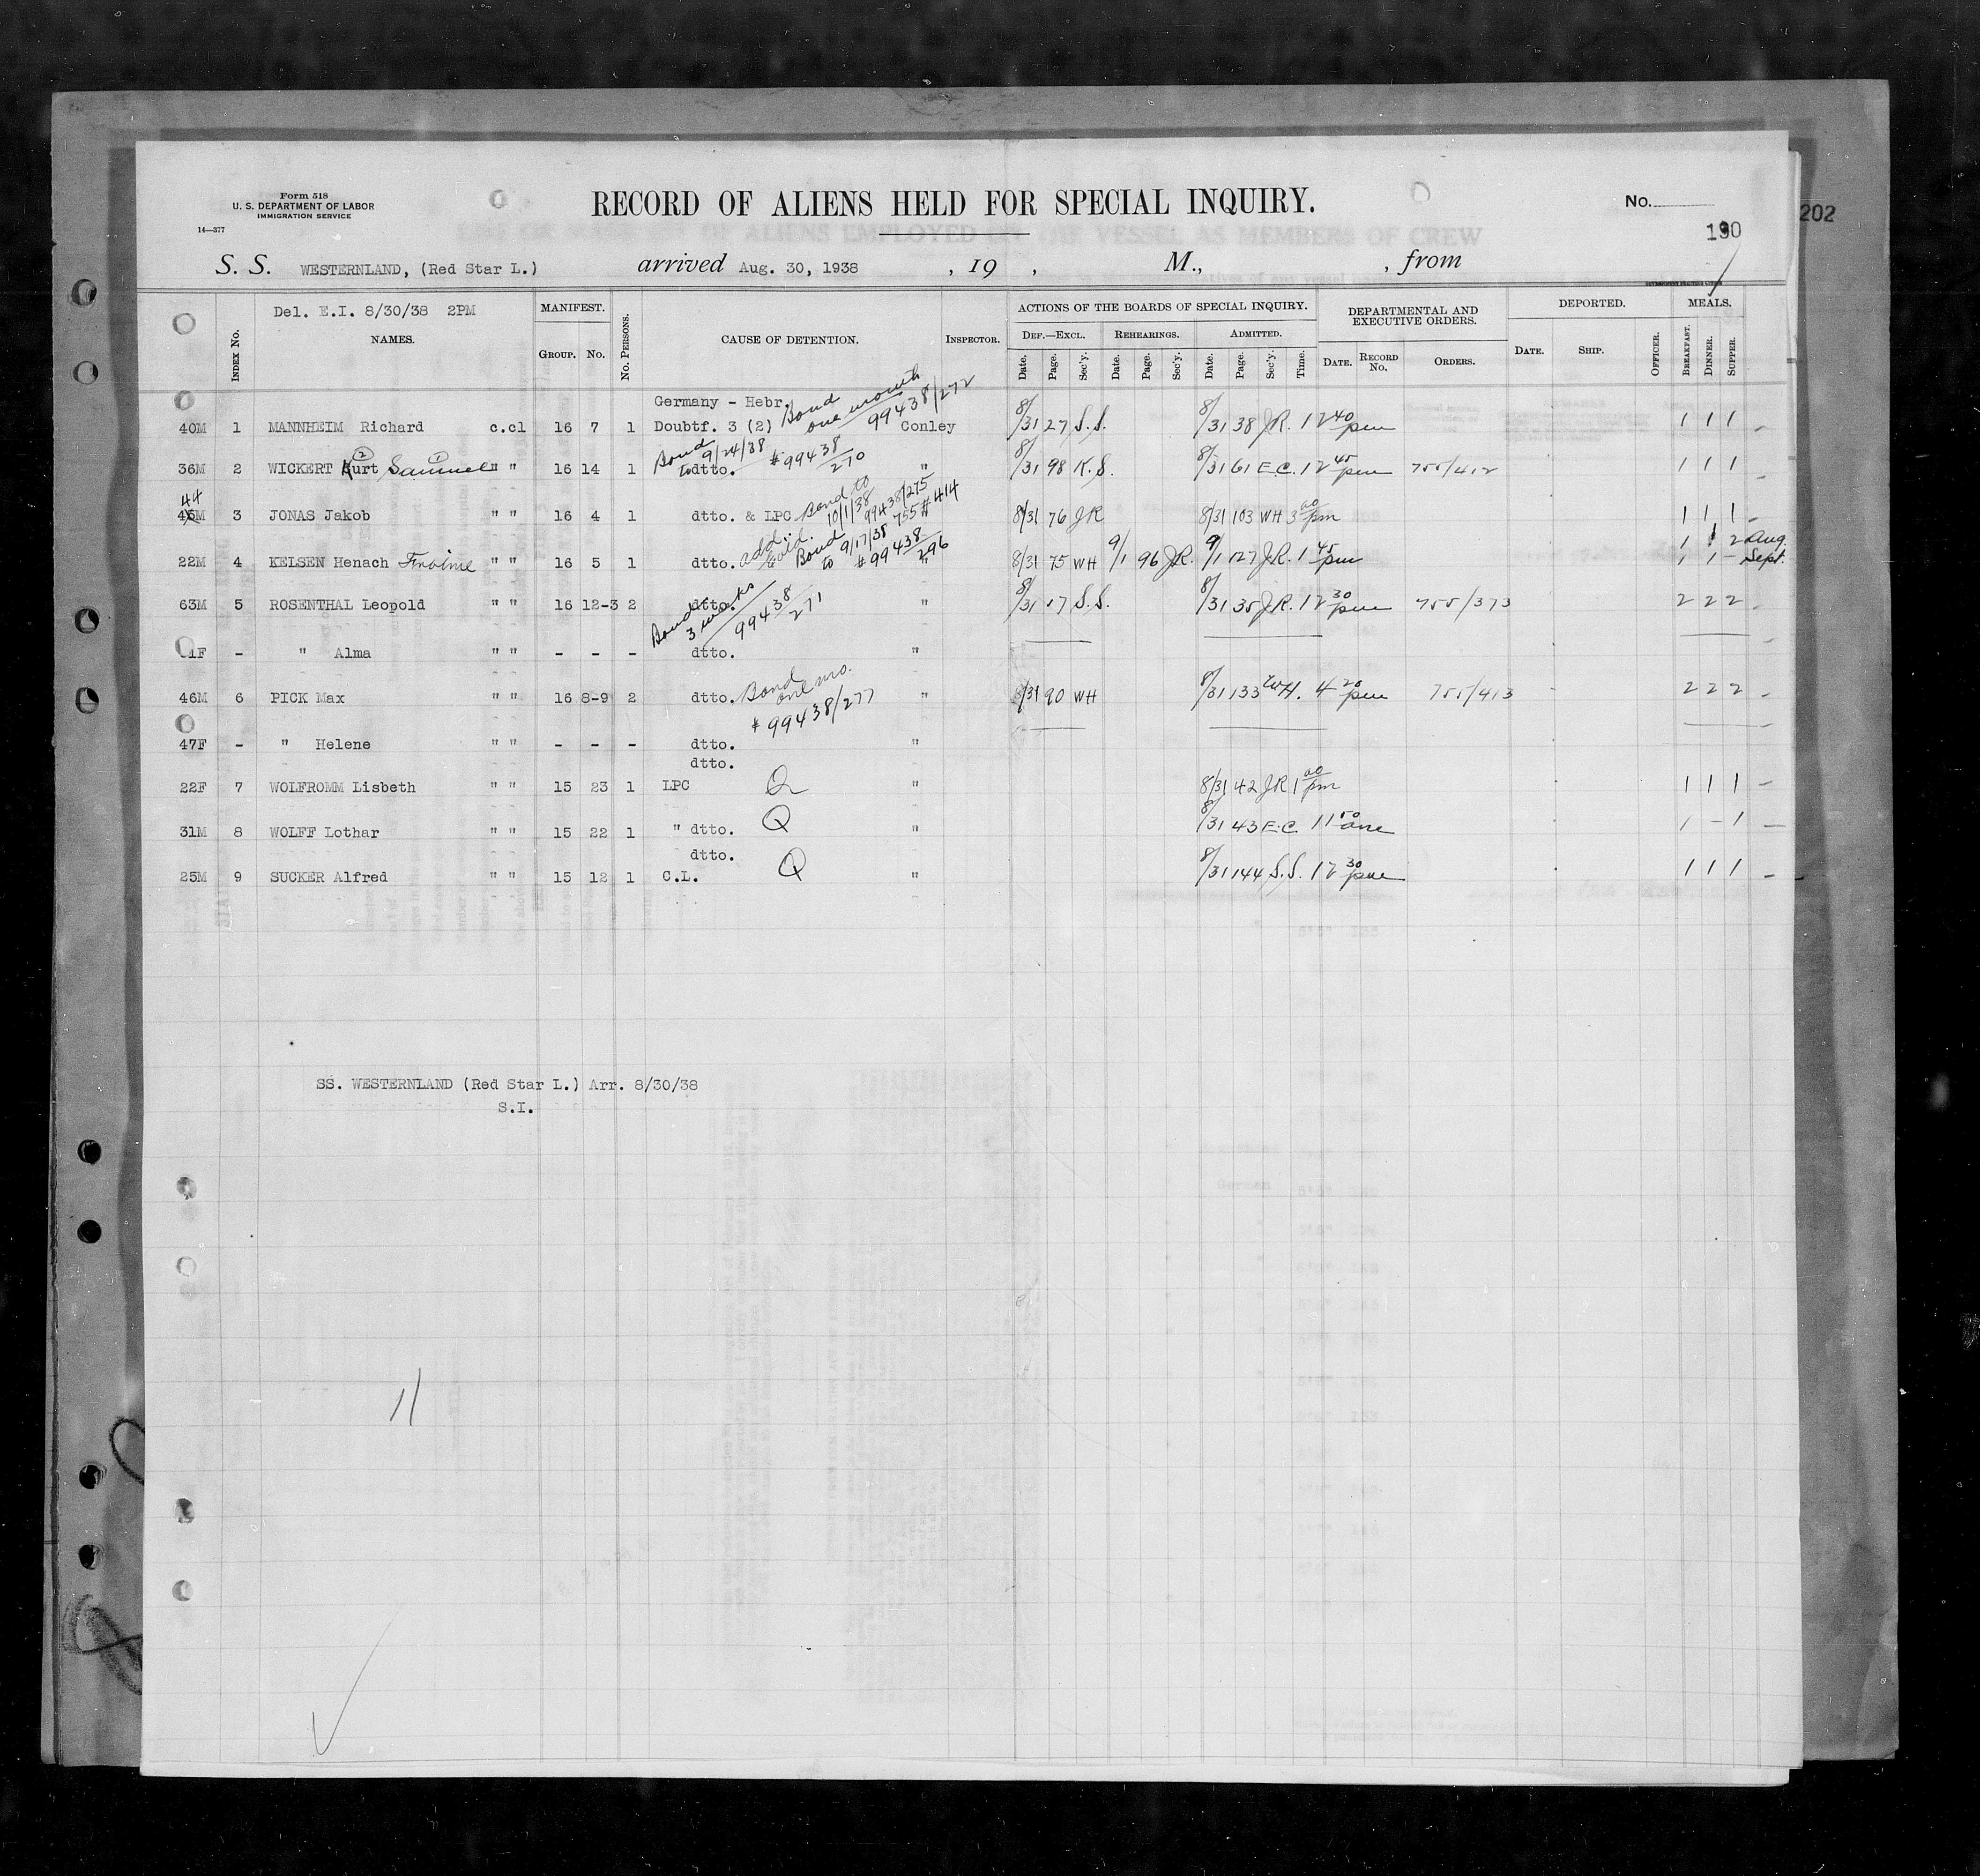 Form 518
U. S. DEPARTMENT OF LABOR
IMMIGRATION SERVICE
14—377
RECORD OF ALIENS HELD FOR SPECIAL INQUIRY.
No.
190
202
S. S. WESTERNLAND, (Red Star L.) arrived Aug. 30, 1938 , 19 , M., , from
Del. E.I. 8/30/38 2PM
MANIFEST. ACTIONS OF THE BOARDS OF SPECIAL INQUIRY. DEPARTMENTAL AND EXECUTIVE ORDERS. DEPORTED. MEALS.
Index No. NAMES. Group. No. No. Persons. CAUSE OF DETENTION. Inspector. Def.—Excl. Rehearings. Admitted.
Date. Page. Sec'y. Date. Page. Sec'y. Date. Page. Sec'y. Time. Date. Record No. Orders. Date. Ship. Officer. Breakfast. Dinner. Supper.
Germany - Hebr. Bond one month 99438/272
40M 1 MANNHEIM Richard c.cl 16 7 1 Doubtf. 3 (2) Conley 8/31 27 S.S. 8/31 38 JR. 12 40 pm 1 1 1 -
Bond to 9/24/38 #99438/270
36M 2 WICKERT Kurt Samuel " " 16 14 1 dtto. " 8/31 98 K.S. 8/31 61 E.C. 12 45 pm 755/412 1 1 1 -
44
Bond to 10/1/38 99438/275 755 #414
45M 3 JONAS Jakob " " 16 4 1 dtto. & LPC 8/31 76 JR 8/31 103 WH 3 00 pm 1 1 1 -
add. Bond to 9/17/38 #99438/296
22M 4 KELSEN Henach Froime " " 16 5 1 dtto. " 8/31 75 WH 9/1 96 JR. 9/1 127 JR. 1 45 pm 1 1 2 Aug.
1 1 - Sept.
63M 5 ROSENTHAL Leopold " " 16 12-3 2 dtto. " 8/31 17 S.S. 8/31 35 JR. 12 30 pm 755/373 2 2 2 -
Bond 3 weeks 99438/271
1F - " Alma " " - - - dtto. "
46M 6 PICK Max " " 16 8-9 2 dtto. Bond one mo. " 8/31 90 WH 8/31 133 WH. 4 20 pm 755/413 2 2 2 -
# 99438/277
47F - " Helene " " - - - dtto. "
dtto.
22F 7 WOLFROMM Lisbeth " " 15 23 1 LPC Q " 8/31 42 JR 1 00 pm 1 1 1 -
31M 8 WOLFF Lothar " " 15 22 1 " dtto. Q " 8/31 43 E.C. 11 50 am 1 - 1 -
dtto.
25M 9 SUCKER Alfred " " 15 12 1 C.L. Q " 8/31 144 S.S. 12 30 pm 1 1 1 -
SS. WESTERNLAND (Red Star L.) Arr. 8/30/38
S.I.
11